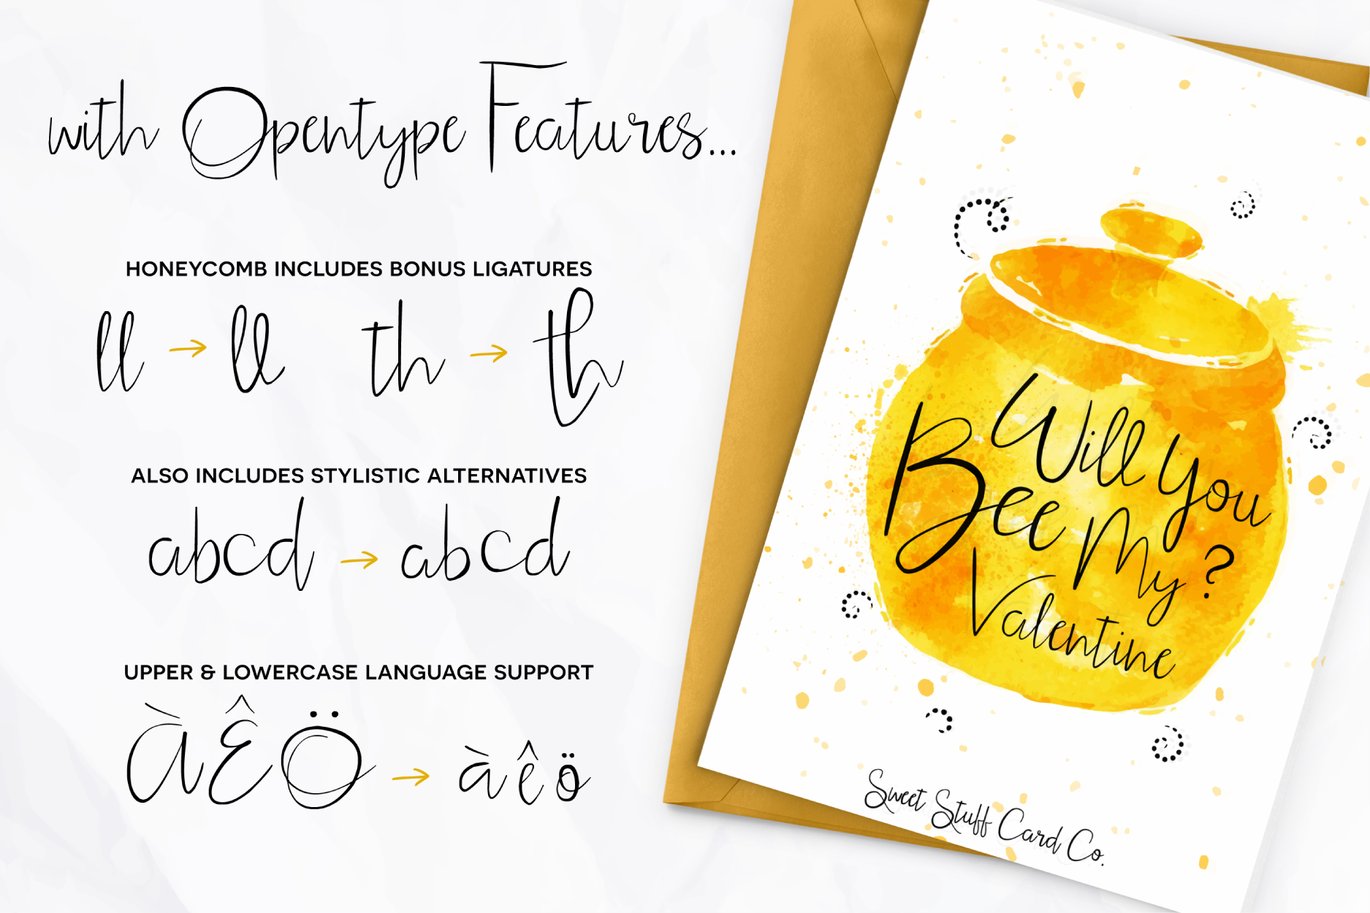 with Opentype Features...
HONEYCOMB INCLUDES BONUS LIGATURES
ll → ll th → th
ALSO INCLUDES STYLISTIC ALTERNATIVES
abcd → abcd
UPPER & LOWERCASE LANGUAGE SUPPORT
ÀÊÖ → àêö
Will You
Bee My
Valentine?
Sweet Stuff Card Co.